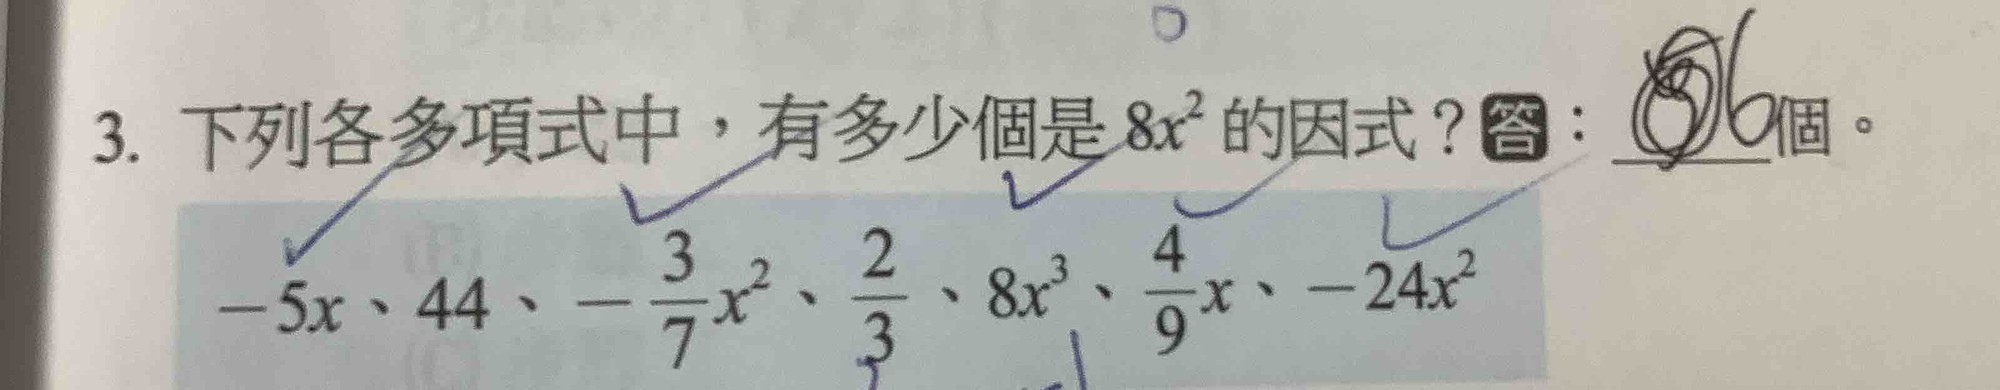 3. 下列各多項式中，有多少個是 8x² 的因式？答：6個。
-5x、44、-3/7x²、2/3、8x³、4/9x、-24x²